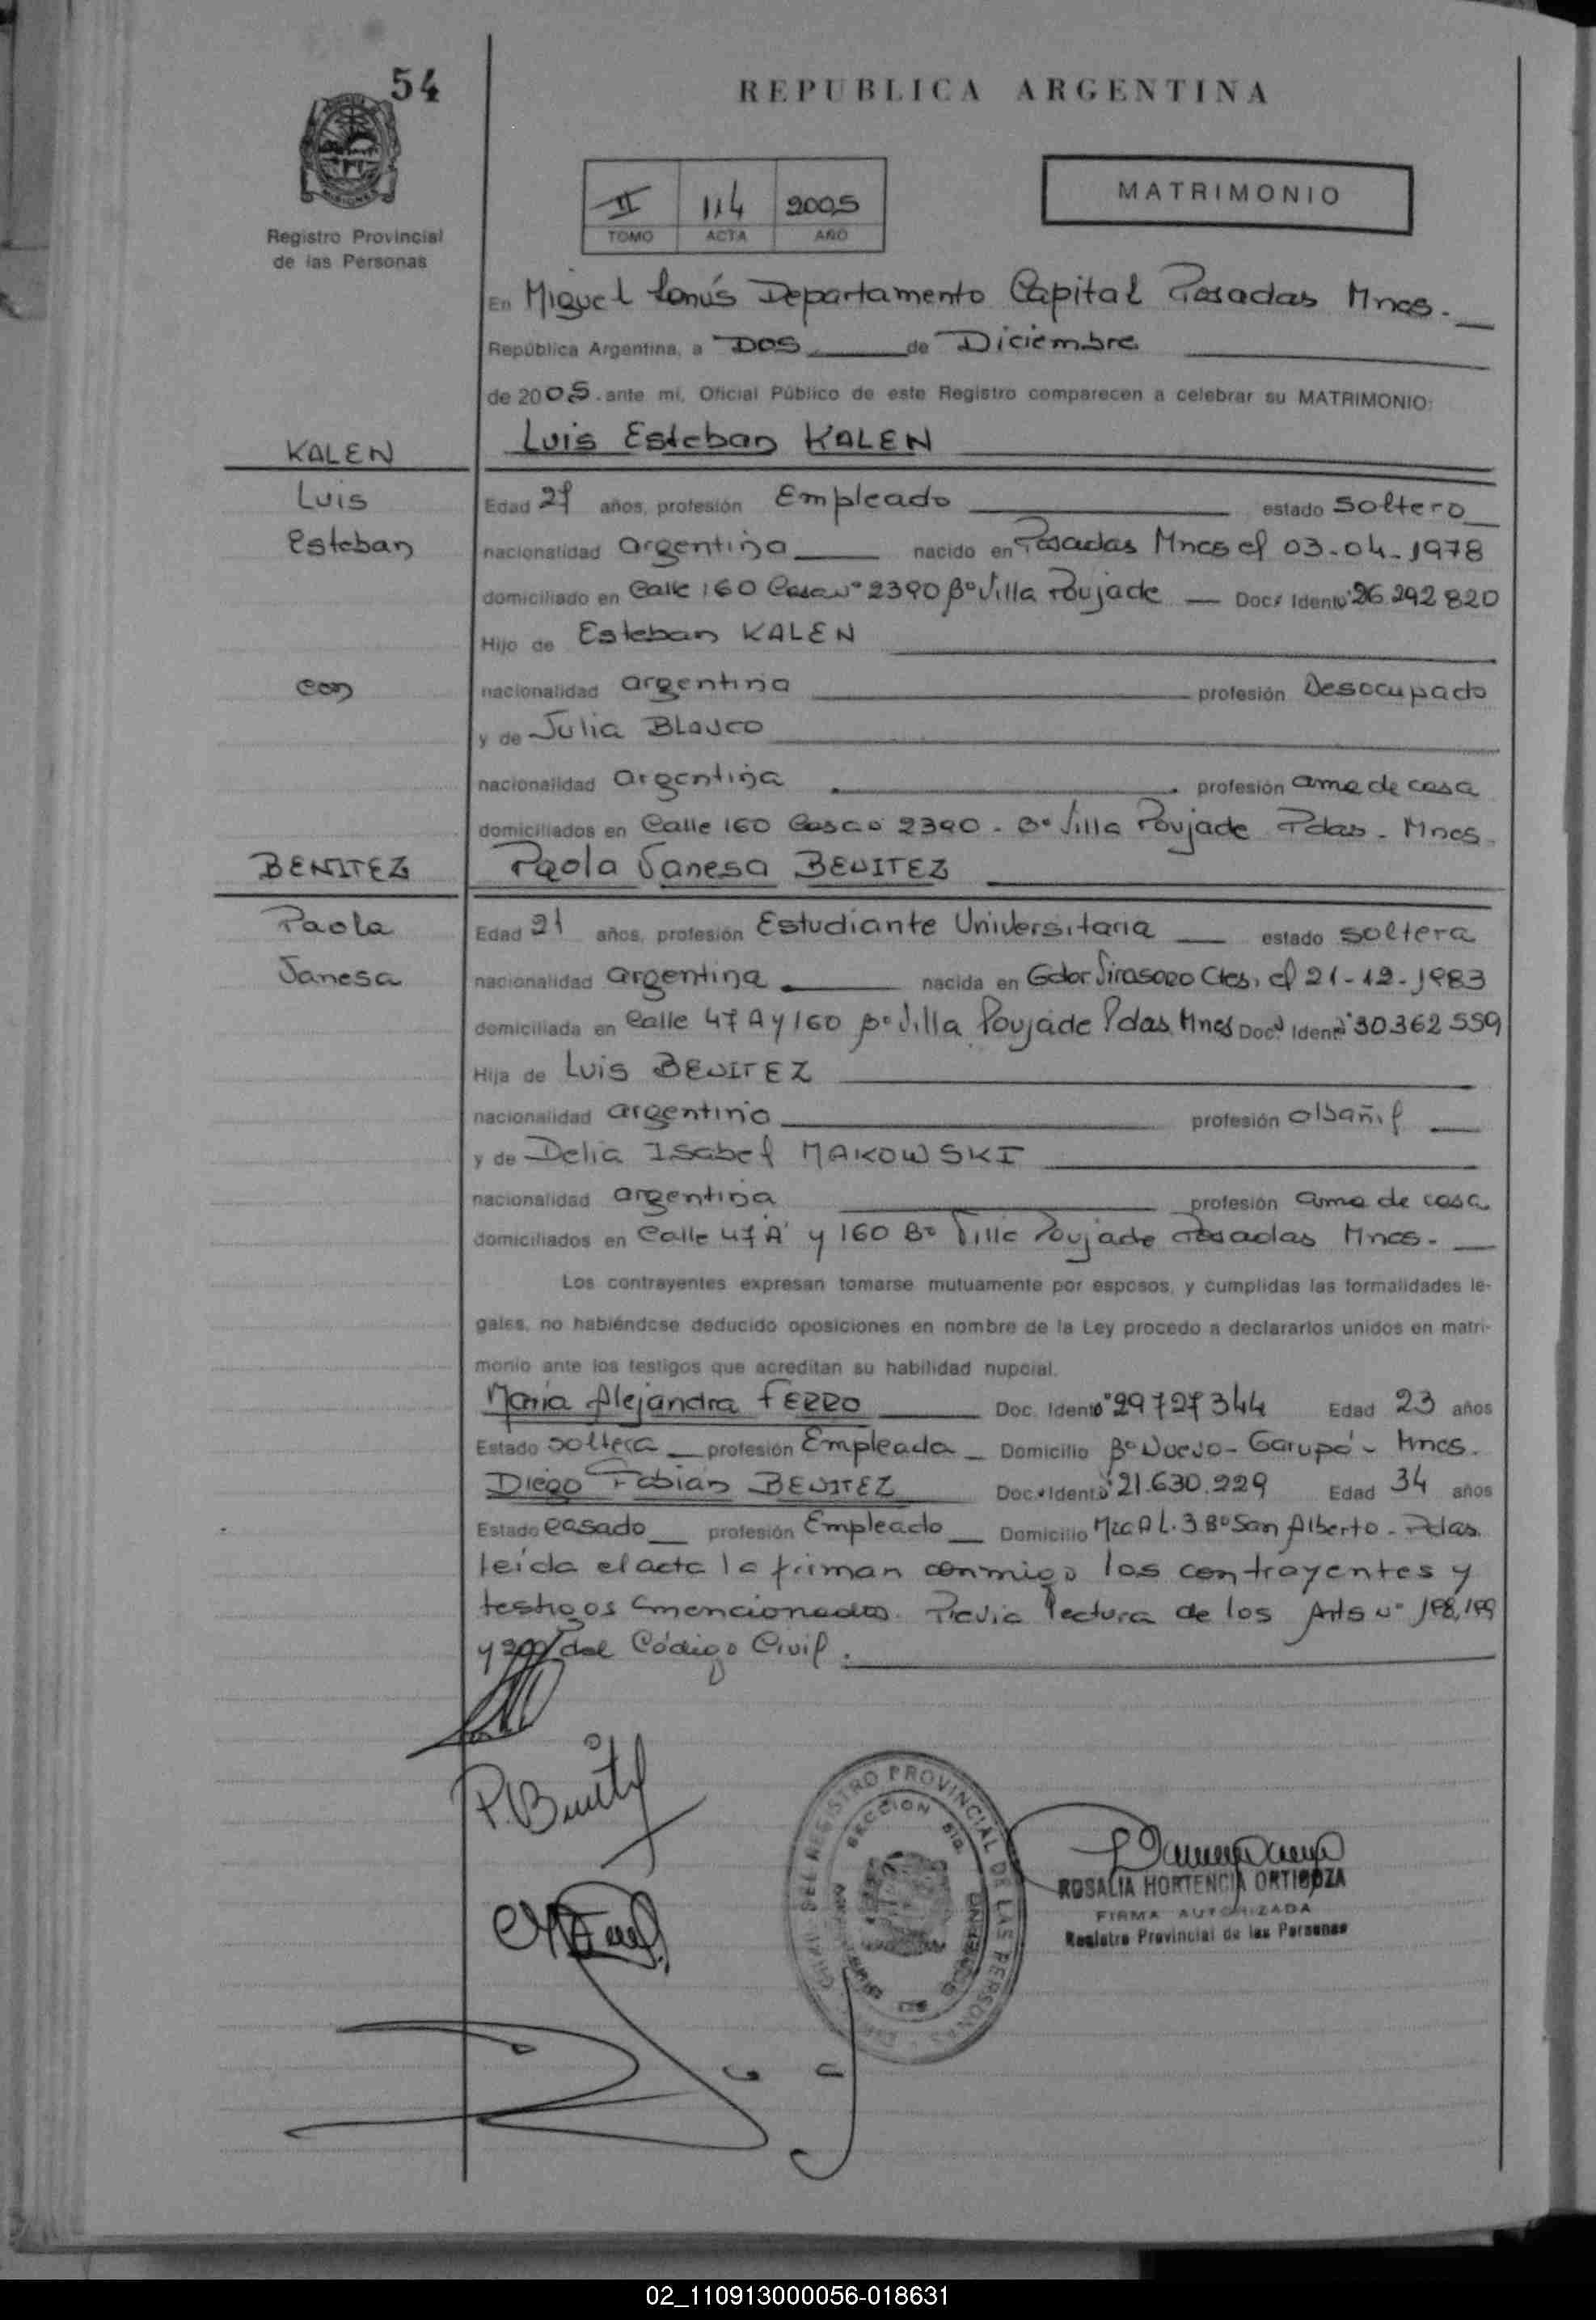 54
REPUBLICA ARGENTINA
II 114 2005
TOMO ACTA AÑO
MATRIMONIO
Registro Provincial
de las Personas
En Miguel Lanús Departamento Capital Posadas Mnes.
República Argentina, a DOS de Diciembre
de 2005. ante mi, Oficial Público de este Registro comparecen a celebrar su MATRIMONIO:
KALEN
Luis Esteban KALEN
Luis
Edad 27 años, profesión Empleado estado soltero
Esteban
nacionalidad argentina nacido en Posadas Mnes el 03-04-1978
domiciliado en Calle 160 Casa Nº 2390 Bº Villa Poujade Doc. Ident. Nº 26.292.820
Hijo de Esteban KALEN
con
nacionalidad argentina profesión Desocupado
y de Julia BLANCO
nacionalidad argentina profesión ama de casa
domiciliados en Calle 160 Casa 2390 - Bº Villa Poujade Pdas - Mnes.
BENITEZ
Paola Vanesa BENITEZ
Paola
Edad 21 años, profesión Estudiante Universitaria estado soltera
Vanesa
nacionalidad argentina nacida en Gdor Virasoro Ctes, el 21-12-1983
domiciliada en Calle 47 A y 160 Bº Villa Poujade Pdas Mnes Doc. Ident. Nº 30.362.559
Hija de Luis BENITEZ
nacionalidad argentino profesión albañil
y de Delia Isabel MAKOWSKI
nacionalidad argentina profesión ama de casa
domiciliados en Calle 47 A y 160 Bº Villa Poujade Posadas Mnes.
Los contrayentes expresan tomarse mutuamente por esposos, y cumplidas las formalidades le-
gales, no habiéndose deducido oposiciones en nombre de la Ley procedo a declararlos unidos en matri-
monio ante los testigos que acreditan su habilidad nupcial.
María Alejandra FERRO Doc. Ident. Nº 29.727.344 Edad 23 años
Estado soltera profesión Empleada Domicilio Bº Nuevo - Garupá - Mnes.
Diego Fabián BENITEZ Doc. Ident. Nº 21.630.229 Edad 34 años
Estado casado profesión Empleado Domicilio Mza A L. 3 Bº San Alberto - Pdas.
leída el acta la firman conmigo los contrayentes y
testigos mencionados. Previa lectura de los Arts Nº 198, 199
y 200 del Código Civil.
P. Benitez
REGISTRO PROVINCIAL DE LAS PERSONAS
SECCION
ROSALIA HORTENCIA ORTIGOZA
FIRMA AUTORIZADA
Registro Provincial de las Personas
02_110913000056-018631